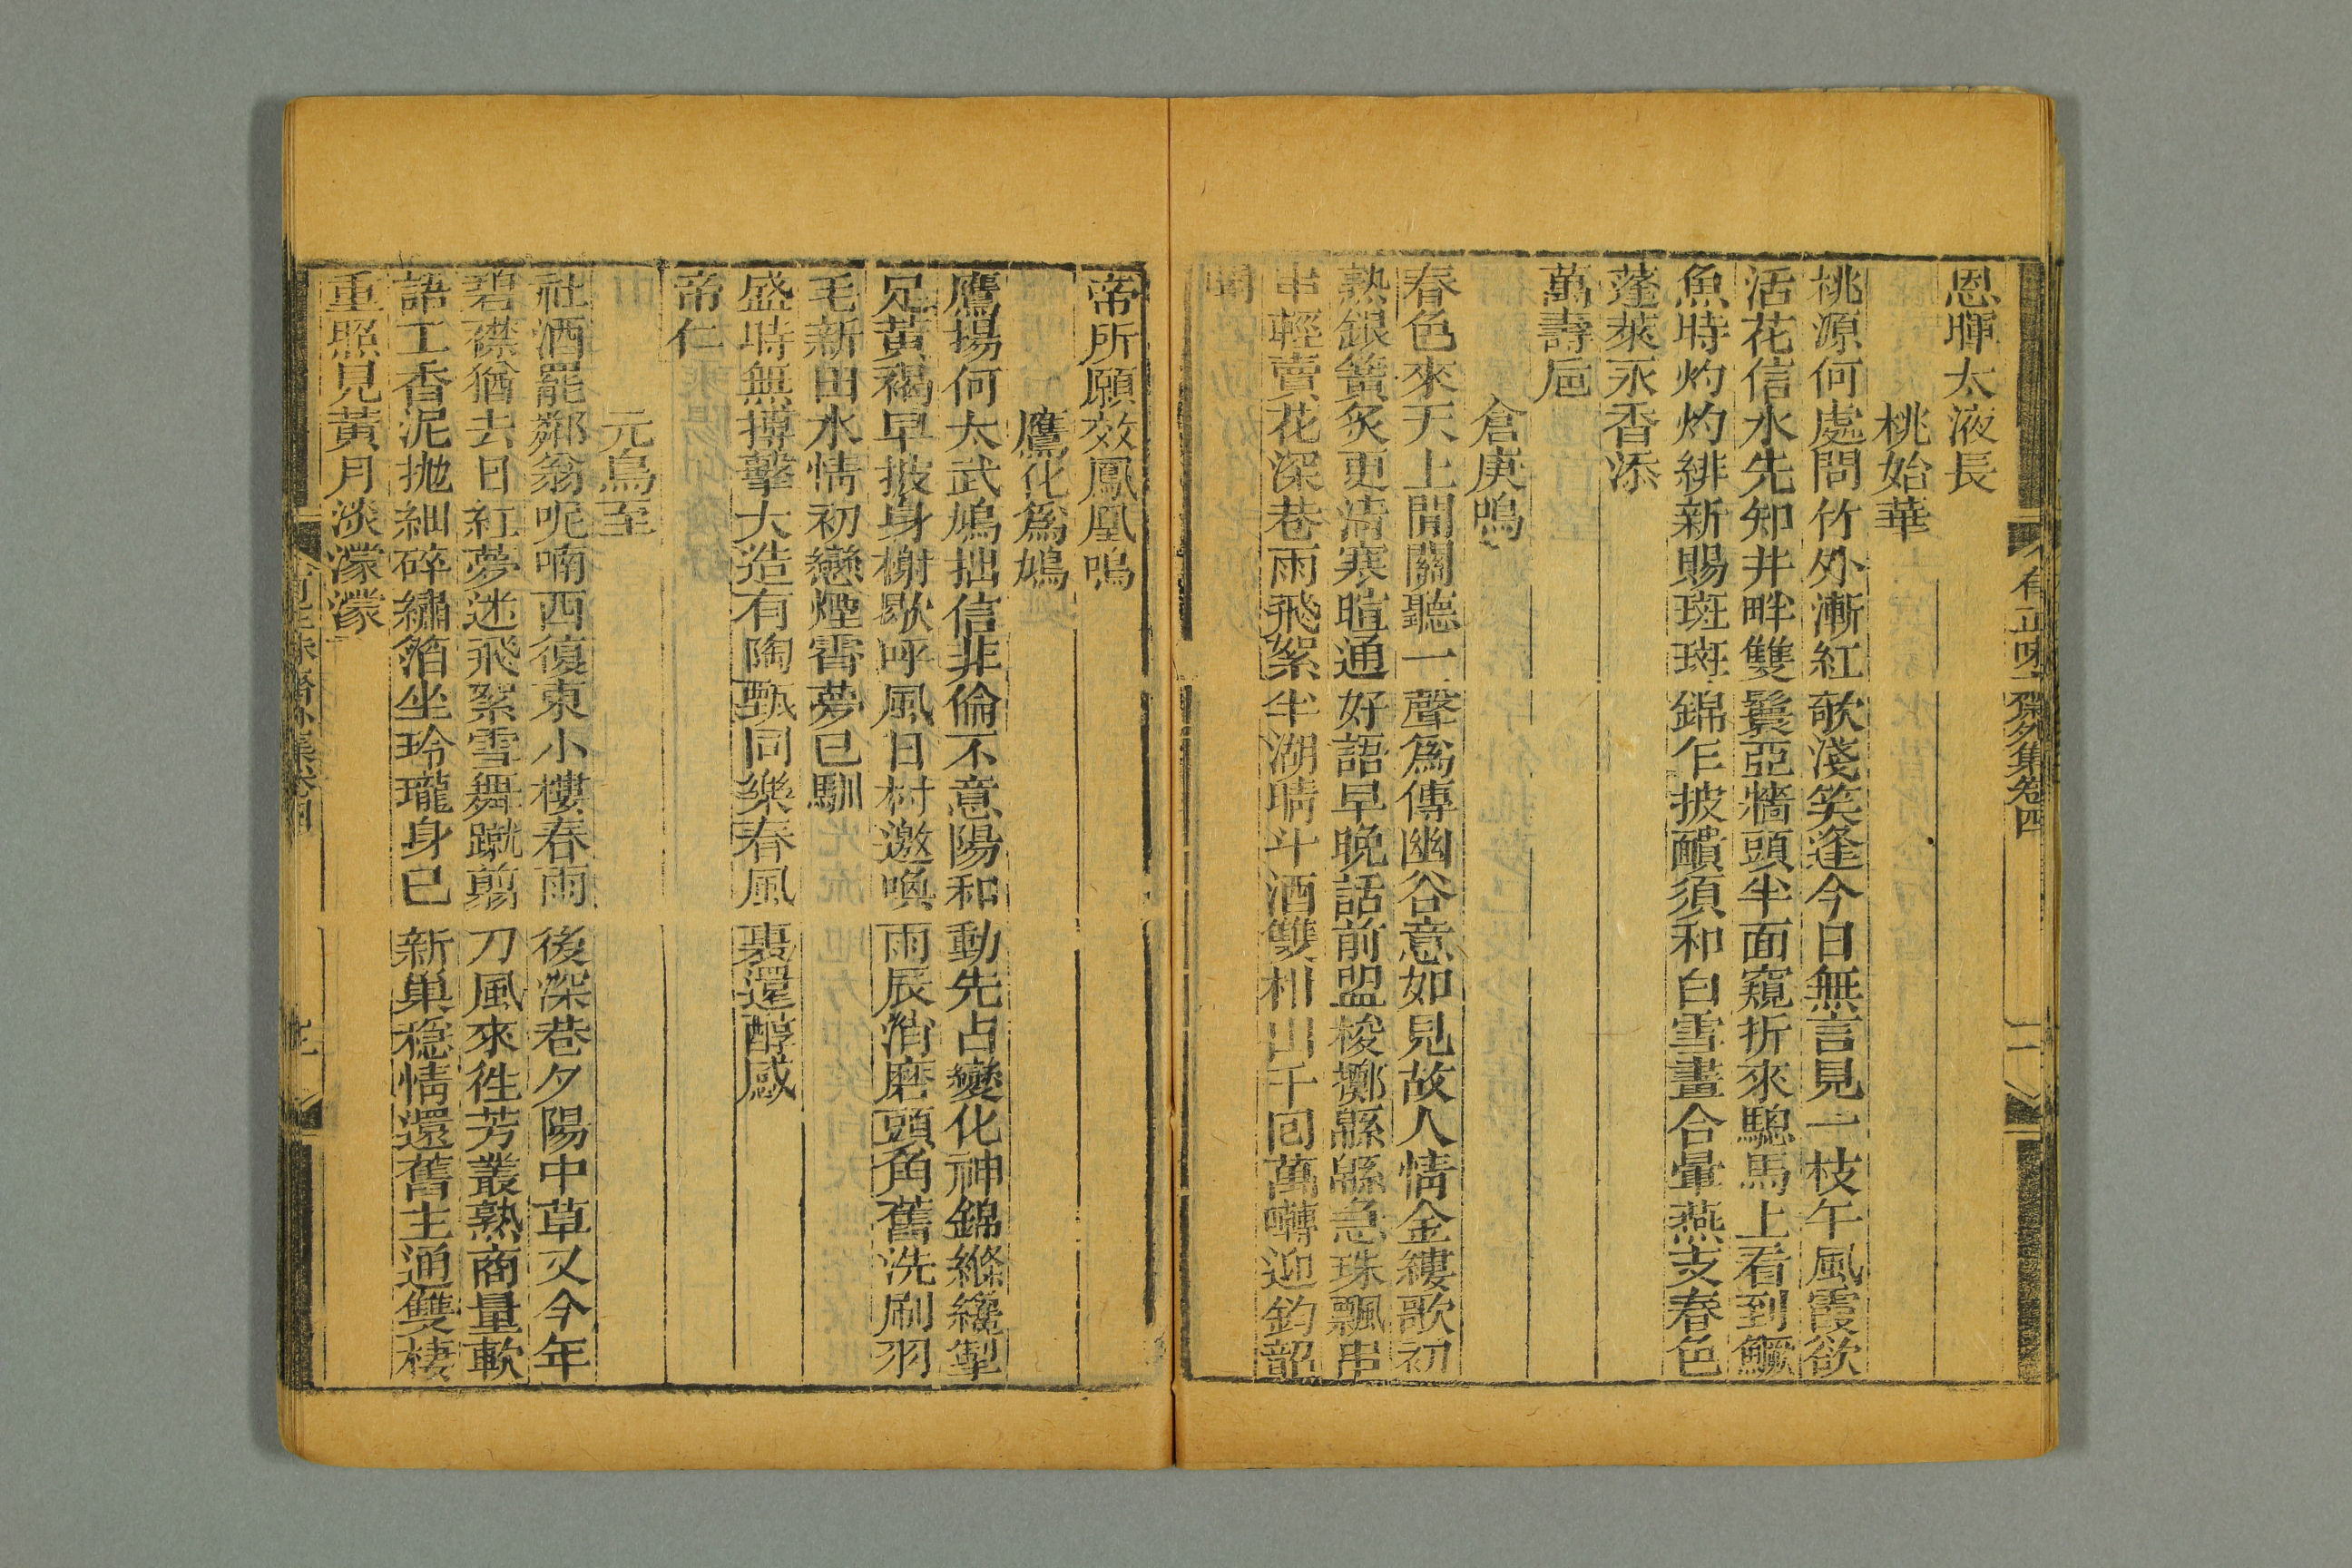 有正味齋外集卷四
二
恩暉太液長
桃始華
桃源何處問竹外漸紅欹淺笑逢今日無言見一枝午風霞欲
活花信水先知井畔雙鬟亞牆頭半面窺折來驄馬上看到鱖
魚時灼灼緋新賜斑斑錦乍披醲須和白雪畫合暈燕支春色
蓬萊永香添
萬壽卮
倉庚鳴
春色來天上間關聽一聲爲傳幽谷意如見故人情金縷歌初
熟銀簧炙更清寒暄通好語早晚話前盟梭擲緜緜急珠飄串
串輕賣花深巷雨飛絮半湖晴斗酒雙柑出千囘萬囀迎鈞韶
聞
帝所願效鳳凰鳴
鷹化爲鳩
鷹揚何太武鳩拙信非倫不意陽和動先占變化神錦縧纔掣
足黃褐早披身榭歇呼風日村邀喚雨辰消磨頭角舊洗刷羽
毛新田水情初戀煙霄夢已馴
盛時無搏擊大造有陶甄同樂春風裏還醇感
帝仁
元鳥至
社酒罷鄰翁呢喃西復東小樓春雨後深巷夕陽中草又今年
碧襟猶去日紅夢迷飛絮雪舞蹴剪刀風來徃芳叢熟商量軟
語工香泥抛細碎繡箔坐玲瓏身已新巢穏情還舊主通雙棲
重照見黃月淡濛濛